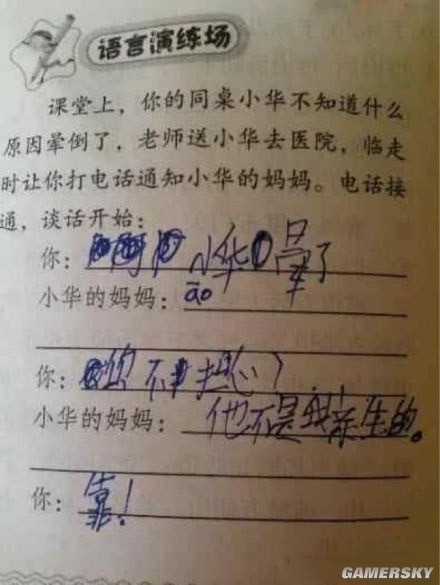 语言演练场
课堂上，你的同桌小华不知道什么
原因晕倒了，老师送小华去医院，临走
时让你打电话通知小华的妈妈。电话接
通，谈话开始：
你：小华晕了
小华的妈妈：āo
你：你不担心？
小华的妈妈：他不是我亲生的。
你：靠！
GAMERSKY